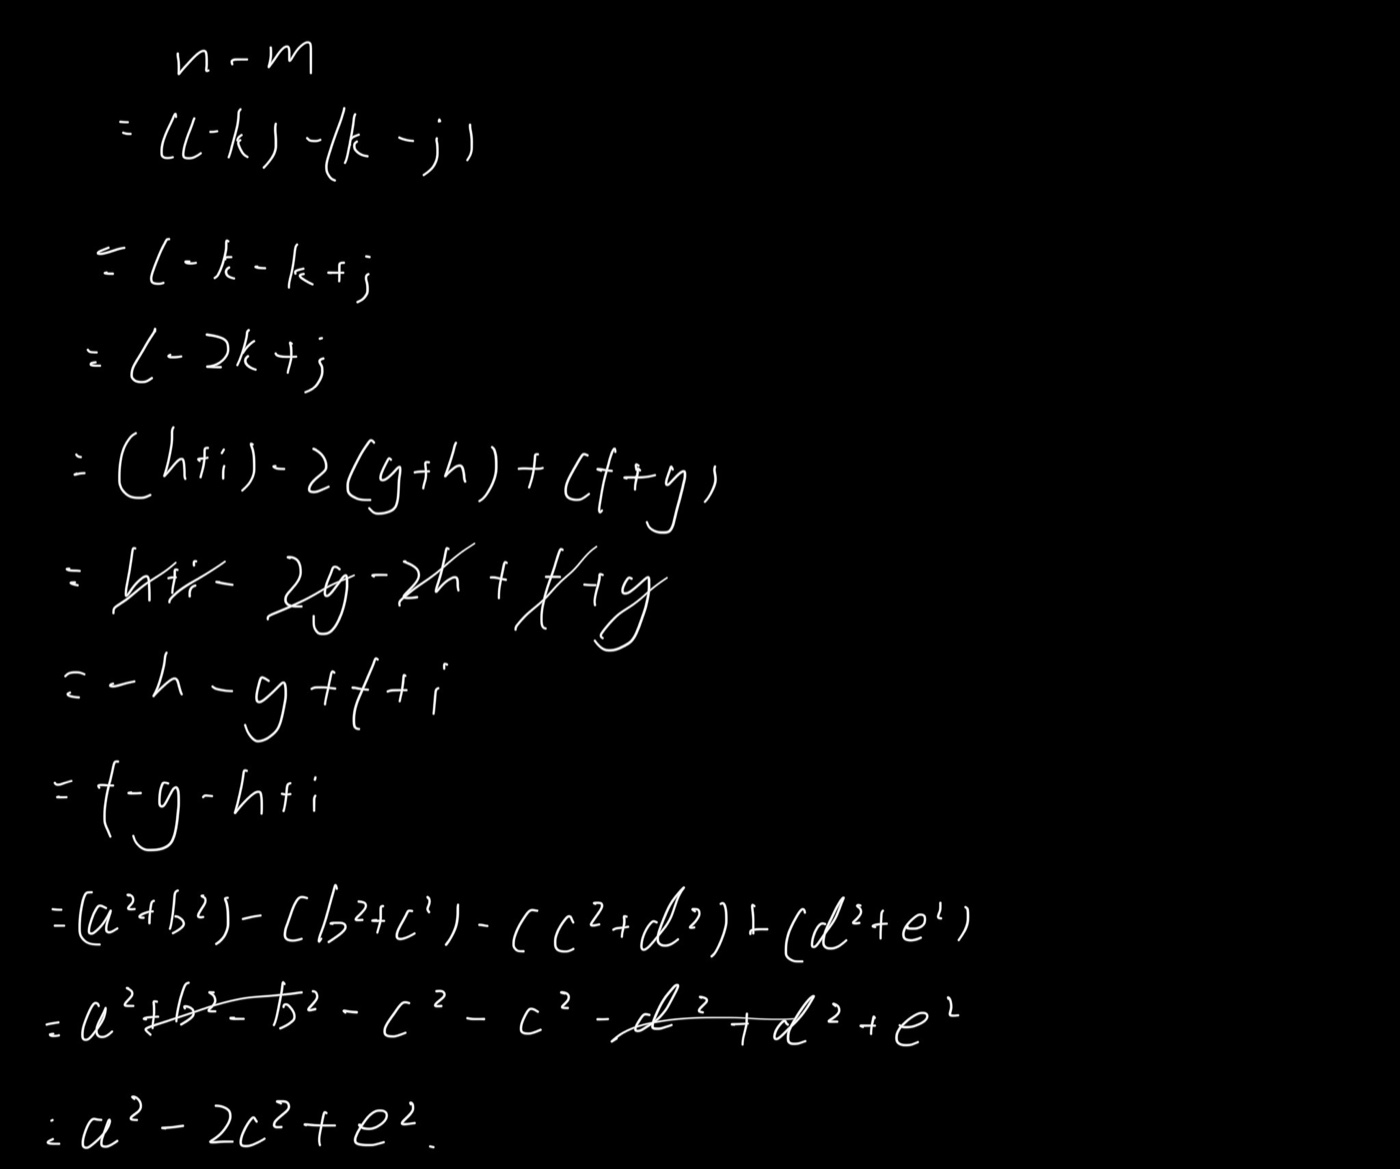 n - m
= (l-k) - (k - j)
= l - k - k + j
= l - 2k + j
= (h+i) - 2(g+h) + (f+g)
= h+i - 2g - 2h + f + g
= -h - g + f + i
= f - g - h + i
= (a²+b²) - (b²+c²) - (c²+d²) + (d²+e²)
= a² + b² - b² - c² - c² - d² + d² + e²
= a² - 2c² + e².